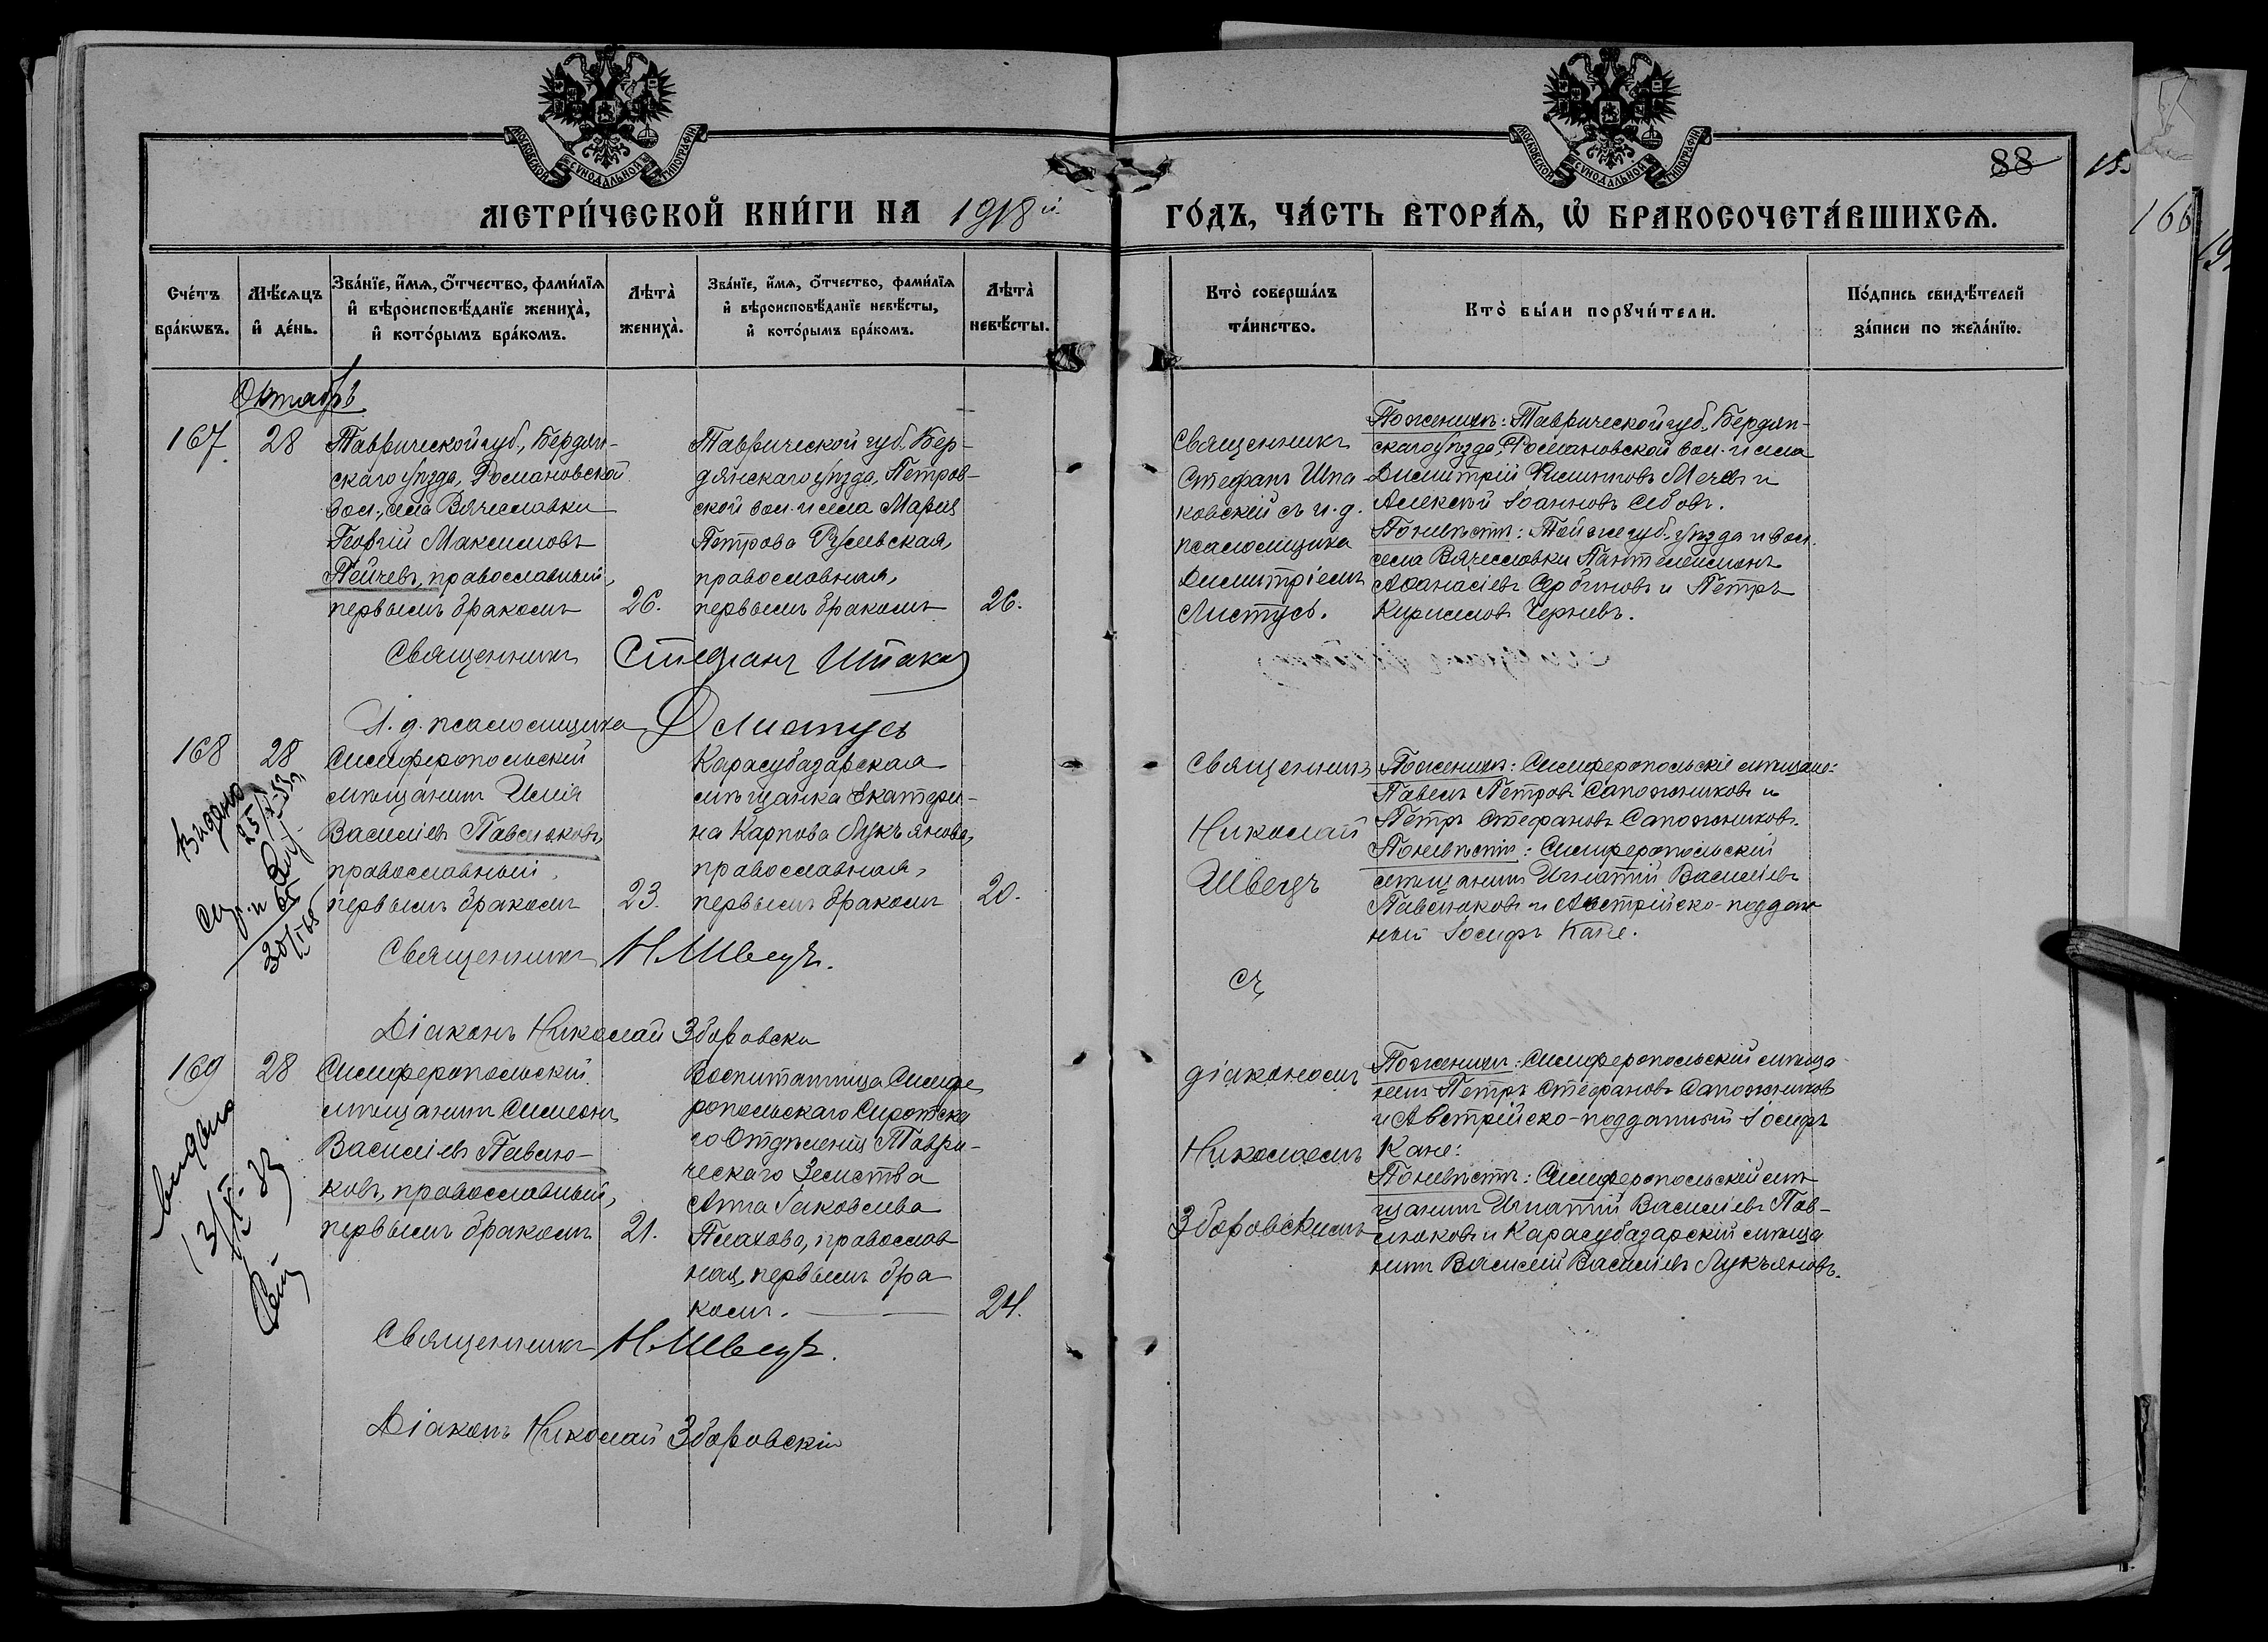 МОСКОВСКОЙ СѴНОДАЛЬНОЙ ТИПОГРАФІИ
МОСКОВСКОЙ СѴНОДАЛЬНОЙ ТИПОГРАФІИ
88
166
МЕТРИ́ЧЕСКОЙ КНИ́ГИ НА 1918й
ГО́ДЪ, ЧА́СТЬ ВТОРА́Ѧ, Ѡ҆ БРАКОСОЧЕТА́ВШИХСѦ.
Сче́тъ бра́кѡвъ.
Мѣ́сѧцъ и҆ де́нь.
Зва́нїе, и҆́мѧ, ѻ҆́тчество, фами́лїѧ и҆ вѣроисповѣ́данїе жениха̀, и҆ кото́рымъ бра́комъ.
Лѣта̀ жениха̀.
Зва́нїе, и҆́мѧ, ѻ҆́тчество, фами́лїѧ и҆ вѣроисповѣ́данїе невѣ́сты, и҆ кото́рымъ бра́комъ.
Лѣта̀ невѣ́сты.
Кто̀ соверша́лъ та́инство.
Кто̀ бы́ли порꙋчи́тели.
По́дпись свидѣ́телей за́писи по жела́нїю.
Октябрь
167.
28
Таврической губ., Бердян-
скаго уѣзда, Романовской
вол., села Вячеславки
Георгій Максимовъ
Пейчевъ, православный,
первымъ бракомъ
26.
Таврической губ. Бер-
дянскаго уѣзда, Петров-
ской вол. и села Марія
Петрова Русевская,
православная,
первымъ бракомъ
26.
Священникъ
Стефанъ Шпа-
ковскій съ и. д.
псаломщика
Димитріемъ
Листусъ.
По женихѣ: Таврической губ. Бердян-
скаго уѣзда, Романовской вол. и села
Димитрій Филипповъ Мечев и
Алексѣй Іоанновъ
По невѣстѣ: Той же губ., уѣзда и вол.
села Вячеславки Пантелеимонъ
Аѳанасіевъ Сербиновъ и Петръ
Кирилловъ Черневъ.
Священникъ Стефанъ Шпако
И. д. псаломщика Д Листусъ
168
28
Симферопольскій
мѣщанинъ Илія
Василіевъ Павлюковъ,
православный,
первымъ бракомъ
23.
Карасубазарская
мѣщанка Екатери-
на Карпова Лукъянова,
православная,
первымъ бракомъ
20.
Священникъ
Николай
Швецъ
съ
По женихѣ: Симферопольскіе мѣщане:
Павелъ Петровъ Сапожниковъ и
Петръ Стефановъ Сапожниковъ.
По невѣстѣ: Симферопольскій
мѣщанинъ Игнатій Василіевъ
Павлюковъ и Австрійско-поддан
ный Іосифъ Кане.
Видано
30/I 65
Священникъ Н. Швецъ.
Діаконъ Николай Зборовскі
169
28
Симферопольскій
мѣщанинъ Симеонъ
Василіевъ Павлю-
ковъ, православный,
первымъ бракомъ
21.
Воспитанница Симфе
ропольскаго Сиротска
го Отдѣленія Таври-
ческаго Земства
Анна Іаковлева
Плахова, православ
ная, первымъ бра
комъ.
24.
діакономъ
Николаемъ
Зборовскимъ
По женихѣ: Симферопольскій мѣща
нинъ Петръ Стефановъ Сапожниковъ
и Австрійско-подданный Іосифъ
Кане:
По невѣстѣ: Симферопольскій мѣ
щанинъ Игнатій Василіевъ Пав-
люковъ и Карасубазарскій мѣща
нинъ Василій Василіевъ Лукъяновъ.
видано
Священникъ Н. Швецъ.
Діаконъ Николай Зборовскій